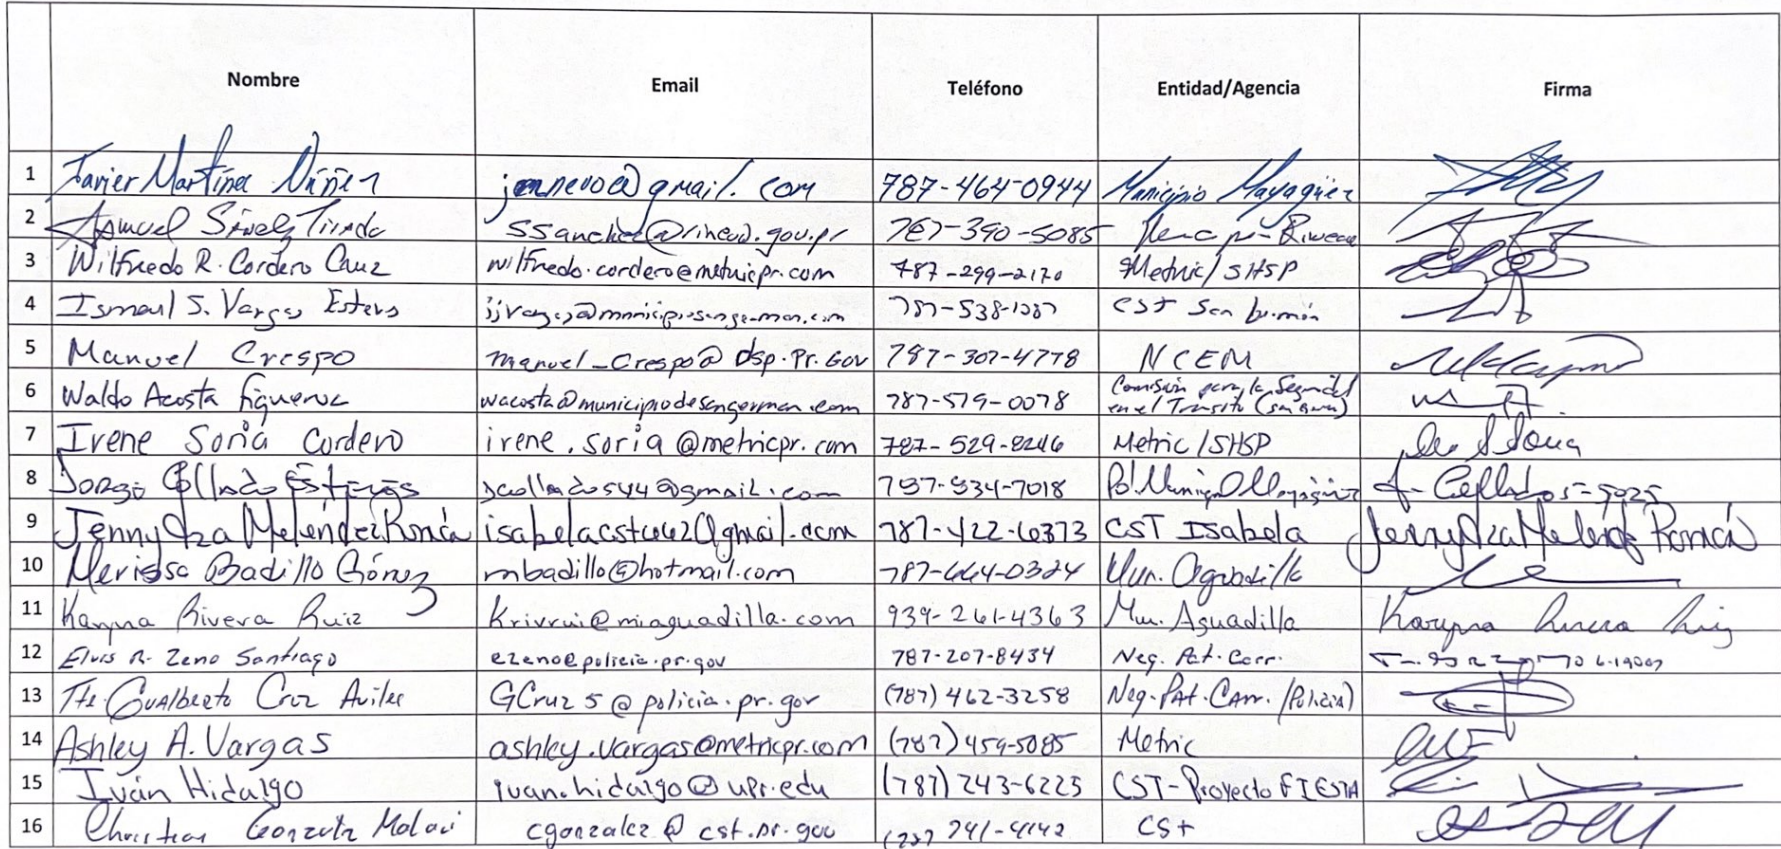 Nombre Email Teléfono Entidad/Agencia Firma
1 Javier Martínez Núñez jmnnevo@gmail.com 787-464-0944 Municipio Mayagüez
2 Samuel 787-390-5085
3 Wilfredo R. Cordero Cruz wilfredo.cordero@metricpr.com 787-299-2170 Metric/SHSP
4 Ismael S. Vargas 787-538-1387 CST San
5 Manuel Crespo manuel_Crespo@dsp.Pr.Gov 787-307-4778 NCEM
6 Waldo Acosta Figueroa wacosta@municipiodesangerman.com 787-579-0078 Comisión para la Seguridad
en el Tránsito
7 Irene Soria Cordero irene.soria@metricpr.com 787-529-8246 Metric/SHSP
8 Collado 787-934-7018
9 Jennytza Meléndez Román 787-422-6373 CST Isabela Jennytza Meléndez Román
10 Merissa Badillo Gómez mbadillo@hotmail.com 787-664-0324 Mun. Aguadilla
11 Karyna Rivera Ruiz Krivrui@miaguadilla.com 939-261-4363 Mun. Aguadilla Karyna Rivera Ruiz
12 Elvis R. Zeno Santiago ezeno@policia.pr.gov 787-207-8434 Neg. Pat. Carr.
13 Tte. Gualberto Cruz Aviles GCruz5@policia.pr.gov (787) 462-3258 Neg. Pat. Carr. (Policia)
14 Ashley A. Vargas ashley.vargas@metricpr.com (787) 459-5085 Metric
15 Iván Hidalgo ivan.hidalgo@upr.edu (787) 243-6225 CST-Proyecto FIESTA
16 Christian cgonzalez@cst.pr.gov CST